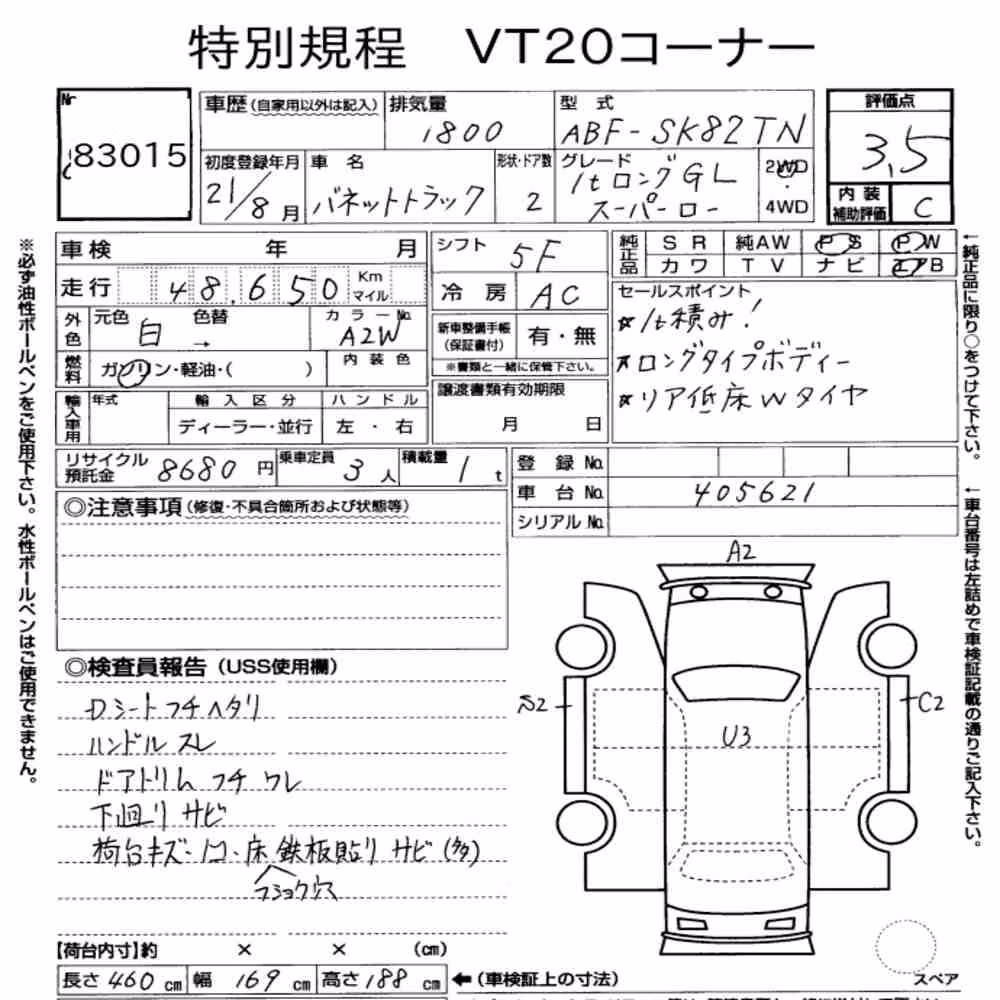 特別規程 VT20コーナー
Nr 83015
車歴(自家用以外は記入)
排気量 1800
型式 ABF-SK82TN
評価点 3,5
内装補助評価 C
初度登録年月 21/8月
車名 バネットトラック
形状・ドア数 2
グレード 1tロングGL スーパーロー
2WD・4WD
車検 年 月
走行 48,650 Km マイル
シフト 5F
冷房 AC
純正品 SR 純AW PS PW
カワ TV ナビ エアB
外色 元色 白 色替 →
カラーNo. A2W
内装色
燃料 ガソリン・軽油・( )
新車整備手帳(保証書付) 有・無
※書類と一緒に保管下さい。
セールスポイント
☆1t積み!
☆ロングタイプボディー
☆リア低床Wタイヤ
輸入車用 年式 輸入区分 ハンドル
ディーラー・並行 左・右
譲渡書類有効期限
月 日
リサイクル預託金 8680円
乗車定員 3人
積載量 1t
登録No.
車台No. 405621
シリアルNo.
◎注意事項(修復・不具合箇所および状態等)
◎検査員報告(USS使用欄)
Dシートフチヘタリ
ハンドルスレ
ドアトリムフチワレ
下廻りサビ
荷台キズ・凹・床鉄板貼りサビ(多)
フショク穴
A2
S2
U3
C2
【荷台内寸】約 × × (cm)
長さ460cm 幅169cm 高さ188cm
←(車検証上の寸法)
スペア
※必ず油性ボールペンをご使用下さい。水性ボールペンはご使用できません。
←純正品に限り○をつけて下さい。
←車台番号は左詰めで車検証記載の通りご記入下さい。